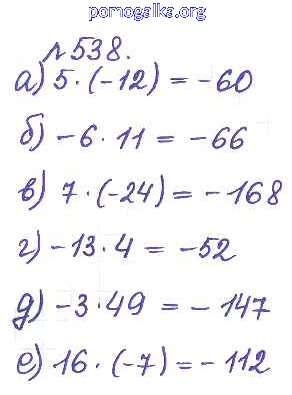 pomogalka.org
№538.
а) 5·(-12) = -60
б) -6·11 = -66
в) 7·(-24) = -168
г) -13·4 = -52
д) -3·49 = -147
е) 16·(-7) = -112